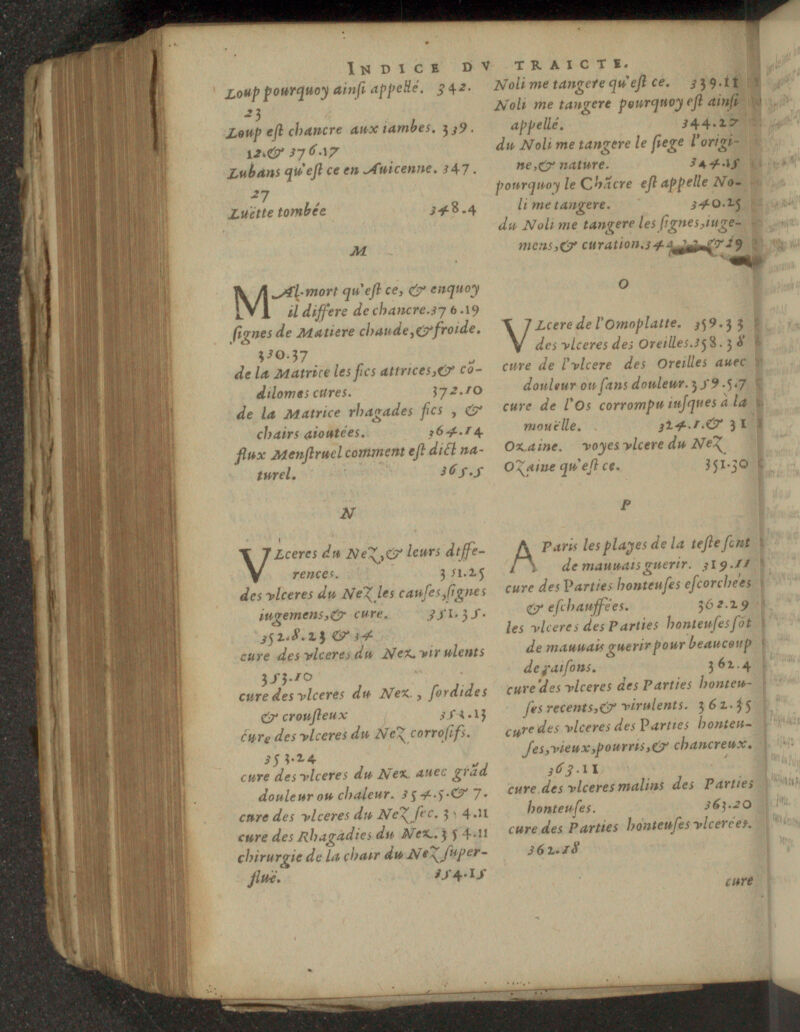 INDICE DV TRAICTE.
Loup pourquoy ainſi appellé. 342.
23
Loup eſt chancre aux iambes. 339.
12.& 376.17
Lubans qu'eſt ce en Auicenne. 347.
27
Luëtte tombée 348.4
M
MAl-mort qu'eſt ce, & enquoy
il differe de chancre.376.19
ſignes de Matiere chaude,& froide.
330.37
de la Matrice les fics attrices,& cō-
dilomes cures. 372.10
de la Matrice rhagades fics , &
chairs aioutées. 364.14
flux Menſtruel comment eſt dict na-
turel. 365.5
N
VLceres du Nez,& leurs diffe-
rences. 351.25
des vlceres du Nez les cauſes,ſignes
iugemens,& cure. 351.35.
352.8.23 & 34
cure des vlceres du Nez virulents
353.10
cure des vlceres du Nez, ſordides
& crouſteux 353.13
cure des vlceres du Nez corroſifs.
353.24
cure des vlceres du Nez auec grād
douleur ou chaleur. 354.5.& 7.
cure des vlceres du Nez ſec. 354.11
cure des Rhagadies du Nez. 354.11
chirurgie de la chair du Nez ſuper-
fluë. 354.15
Noli me tangere qu'eſt ce. 339.11
Noli me tangere pourquoy eſt ainſi
appellé. 344.27
du Noli me tangere le ſiege l'origi-
ne,& nature. 344.15
pourquoy le Chācre eſt appelle No-
li me tangere. 340.25
du Noli me tangere les ſignes,iuge-
mens,& curation. & 19
O
VLcere de l'Omoplatte. 359.33
des vlceres des Oreilles.358.38
cure de l'vlcere des Oreilles auec
douleur ou ſans douleur.359.5.7
cure de l'Os corrompu iuſques à la
mouëlle. 324.1.& 31
Ozaine. voyes vlcere du Nez
Ozaine qu'eſt ce. 351.30
P
A Paris les playes de la teſte ſont
de mauuais guerir. 319.11
cure des Parties honteuſes eſcorchées
& eſchauffées. 362.29
les vlceres des Parties honteuſes ſōt
de mauuais guerir pour beaucoup
de raiſons. 362.4
cure des vlceres des Parties honteu-
ſes recents,& virulents. 362.35
cure des vlceres des Parties honteu-
ſes,vieux,pourris,& chancreux.
363.11
cure des vlceres malins des Parties
honteuſes. 363.20
cure des Parties honteuſes vlcerées.
362.18
cure